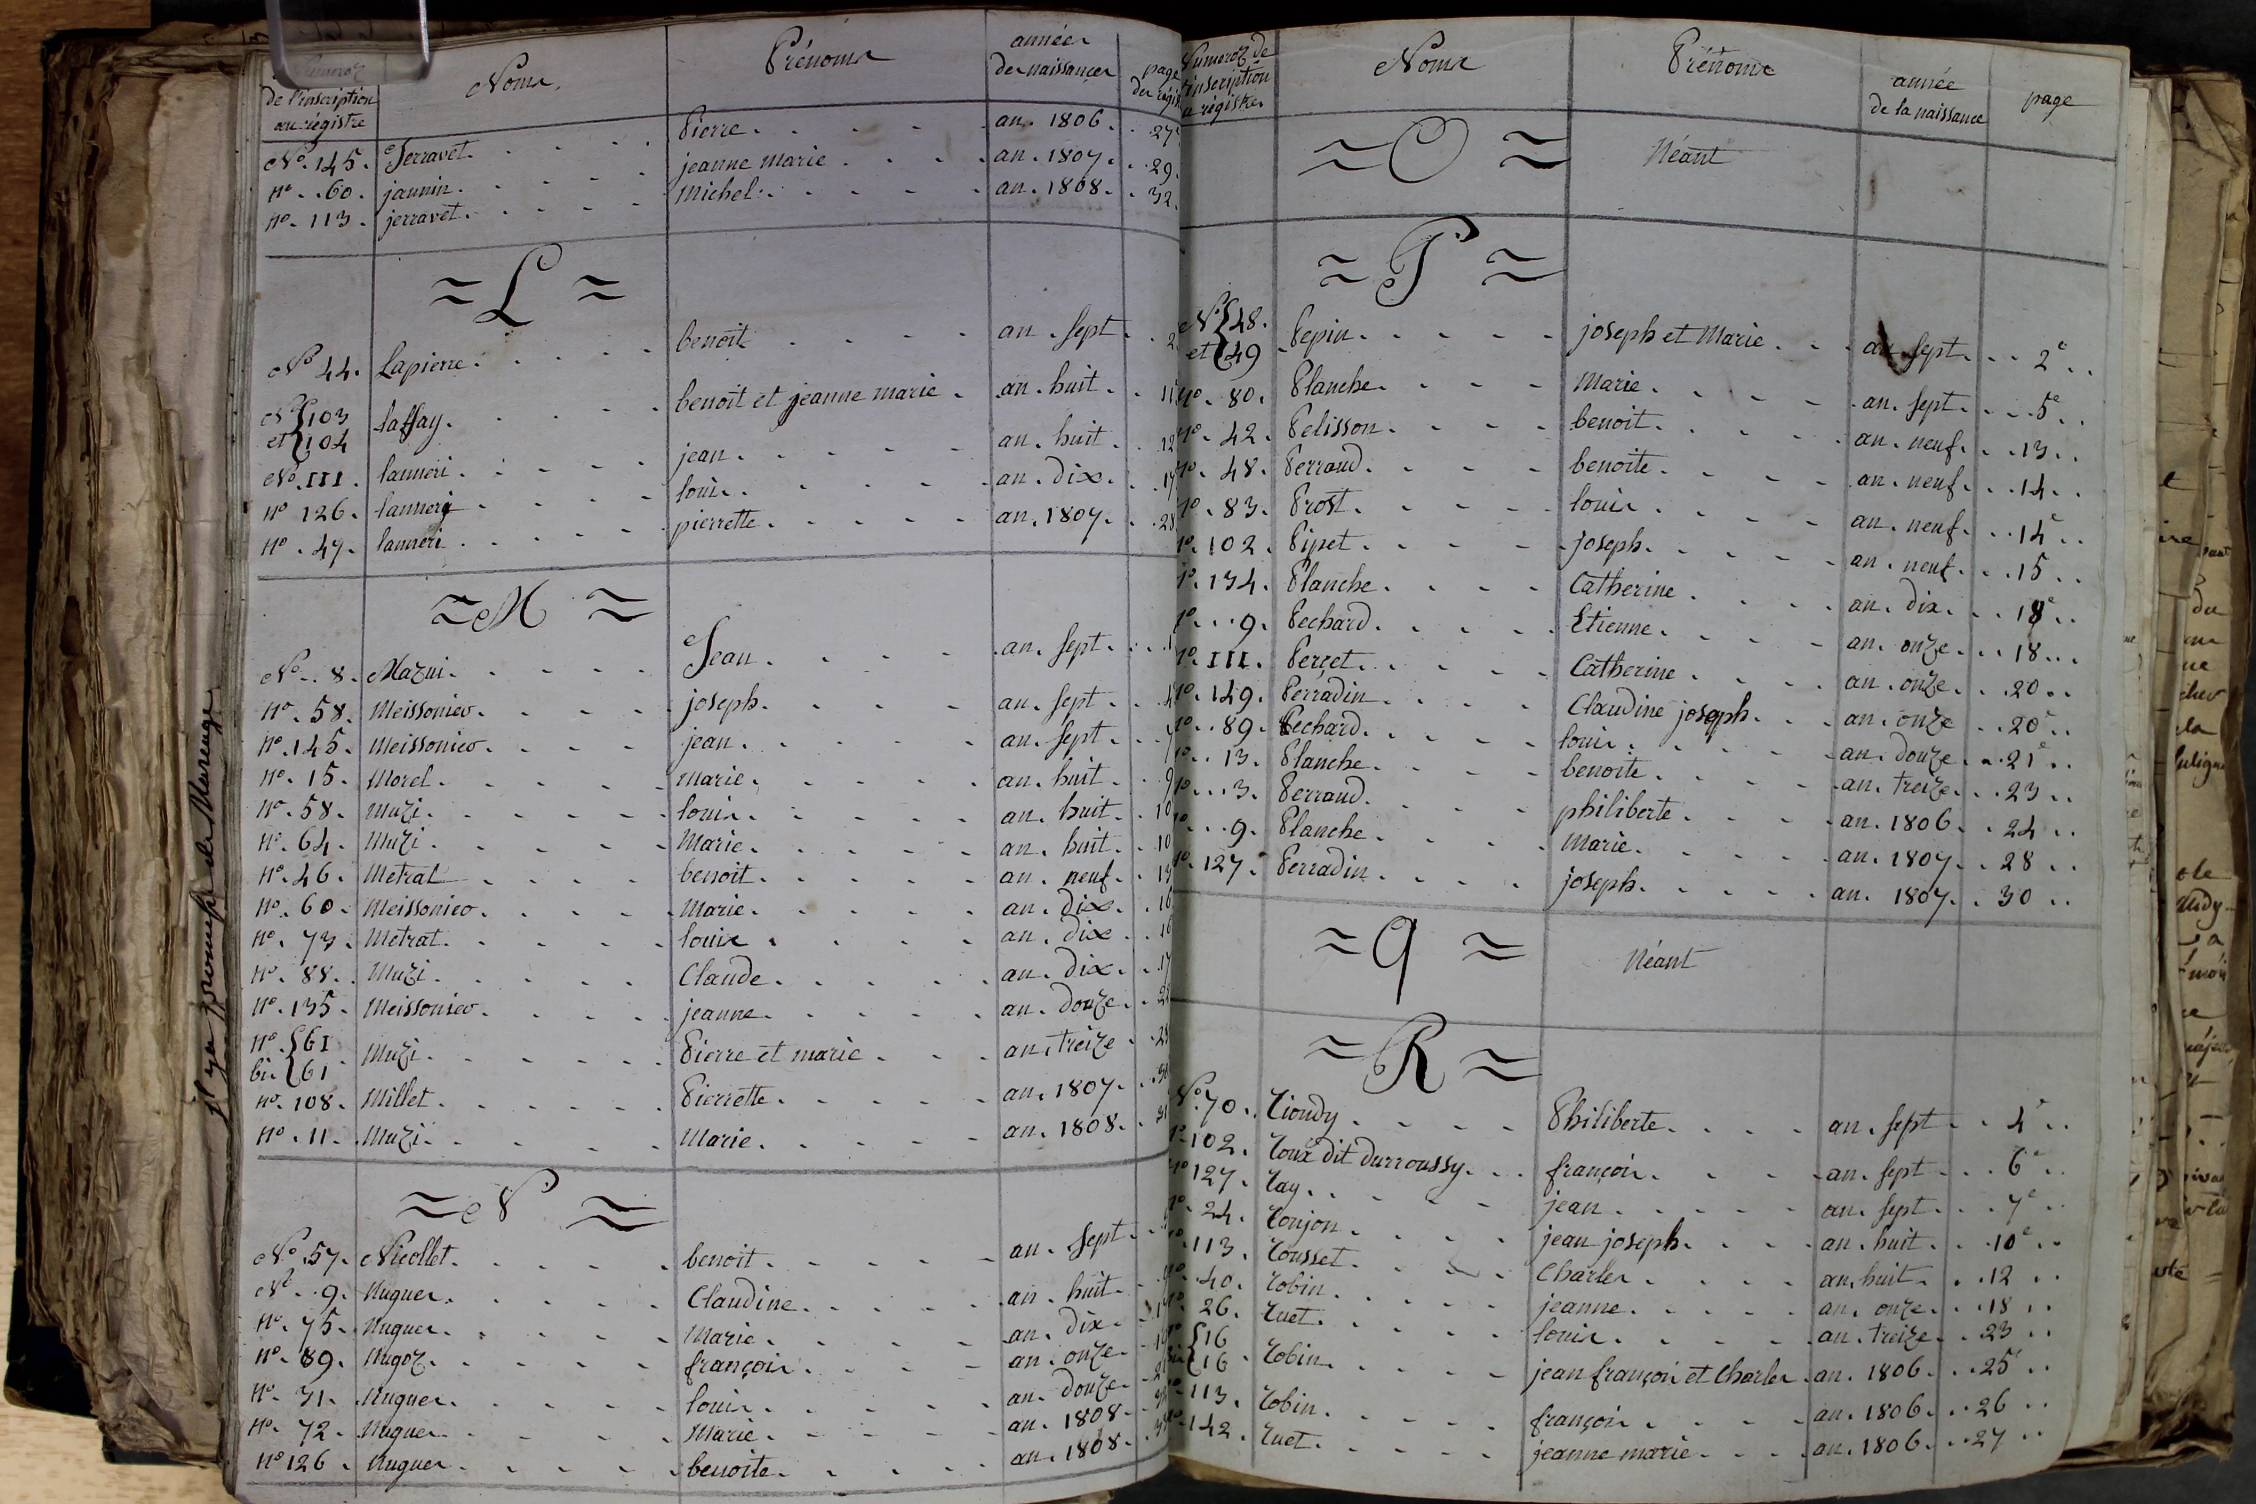 Numéroz de l'inscription au régistre | Noms. | Prénoms | années des naissances | page du régist
N.o 145. Jerravet. Pierre. an. 1806. 27
n.o 60. jannin. jeanne marie. an. 1807. 29.
n.o 113. jerravet. Michel. an. 1808. 32.
= L =
N.o 44. Lapierre. benoit. an. sept. 2
N.o 103 et 104 laffay. benoit et jeanne marie. an. huit. 11
N.o 111. lanneri. jean. an. huit. 12
n.o 126. lanneri louis. an. dix. 17
n.o 47. lanneri. pierrette. an. 1807. 28
= M =
N.o 8. Mazui. Jean. an. sept. 1
n.o 58. Meissonier. joseph. an. sept. 4
n.o 145. Meissonier. jean. an. sept. 7
n.o 15. Morel. marie. an. huit. 9
n.o 58. Muzi. louis. an. huit. 10
n.o 64. Muzi. Marie. an. huit. 10
n.o 46. Metrat benoit. an. neuf. 13
n.o 60. Meissonier. Marie. an. dix. 16
n.o 73. Metrat. louis. an. dix. 16
n.o 88. Muzi. Claude. an. dix. 17
n.o 135. Meissonier. jeanne. an. douze.
n.o 61 bis 61 Muzi. Pierre et marie. an. treize
n.o 108. Millet. Pierrette. an. 1807.
n.o 11. Muzi. Marie. an. 1808. 31
= N =
N.o 57. Nicollet. benoit. an. sept.
N.o 9. Nuguer. Claudine. an. huit.
n.o 75. Nuguer. Marie. an. dix.
n.o 89. Nugoz. françois. an. onze.
n.o 31. Nuguer. louis. an. douze.
n.o 72. Nuguer. Marie. an. 1808.
n.o 126. Nuguer benoite. an. 1808.
jl ya promesse de Mareage
Numéroz de l'inscription au régistre. | Noms | Prénoms | année de la naissance | page
= O = Néant
= P =
N.o 48. et 49 Pepin. joseph et Marie. an. sept. 2e
n.o 80. Planche. Marie. an. sept. 5e
n.o 42. Pelisson. benoit. an. neuf. 13
n.o 48. Perraud. benoite. an. neuf. 14
n.o 83. Prost. louis. an. neuf. 14e
n.o 102. Pipet. joseph. an. neuf. 15
n.o 134. Planche. Catherine. an. dix. 18e
n.o 9. Pechard. Etienne. an. onze. 18
n.o 111. Perçet. Catherine. an. onze. 20
n.o 149. Perradin. Claudine joseph. an. onze 20e
n.o 89. Pechard. louis. an. douze. 21e
n.o 13. Planche. benoite. an. treize. 23
n.o 3. Perraud. philiberte. an. 1806. 24
n.o 9. Planche. Marie. an. 1807. 28
n.o 127. Perradin. joseph. an. 1807. 30
= Q = Néant
= R =
N.o 70. Rioudy. Philiberte. an. sept. 4e
n.o 102. Roux dit durroussy. françois. an. sept. 6e
n.o 127. Ray. jean. an. sept. 7e
n.o 24. Roujon. jean joseph. an. huit. 10e
n.o 113. Rousset. Charles. an. huit. 12
n.o 40. Robin. jeanne. an. onze. 18
n.o 26. Ruet. louis. an. treize. 23
16 bis 16 Robin. jean françois et Charles. an. 1806. 25e
n.o 113. Robin. françois. an. 1806. 26
n.o 142. Ruet. jeanne marie. an. 1806. 27